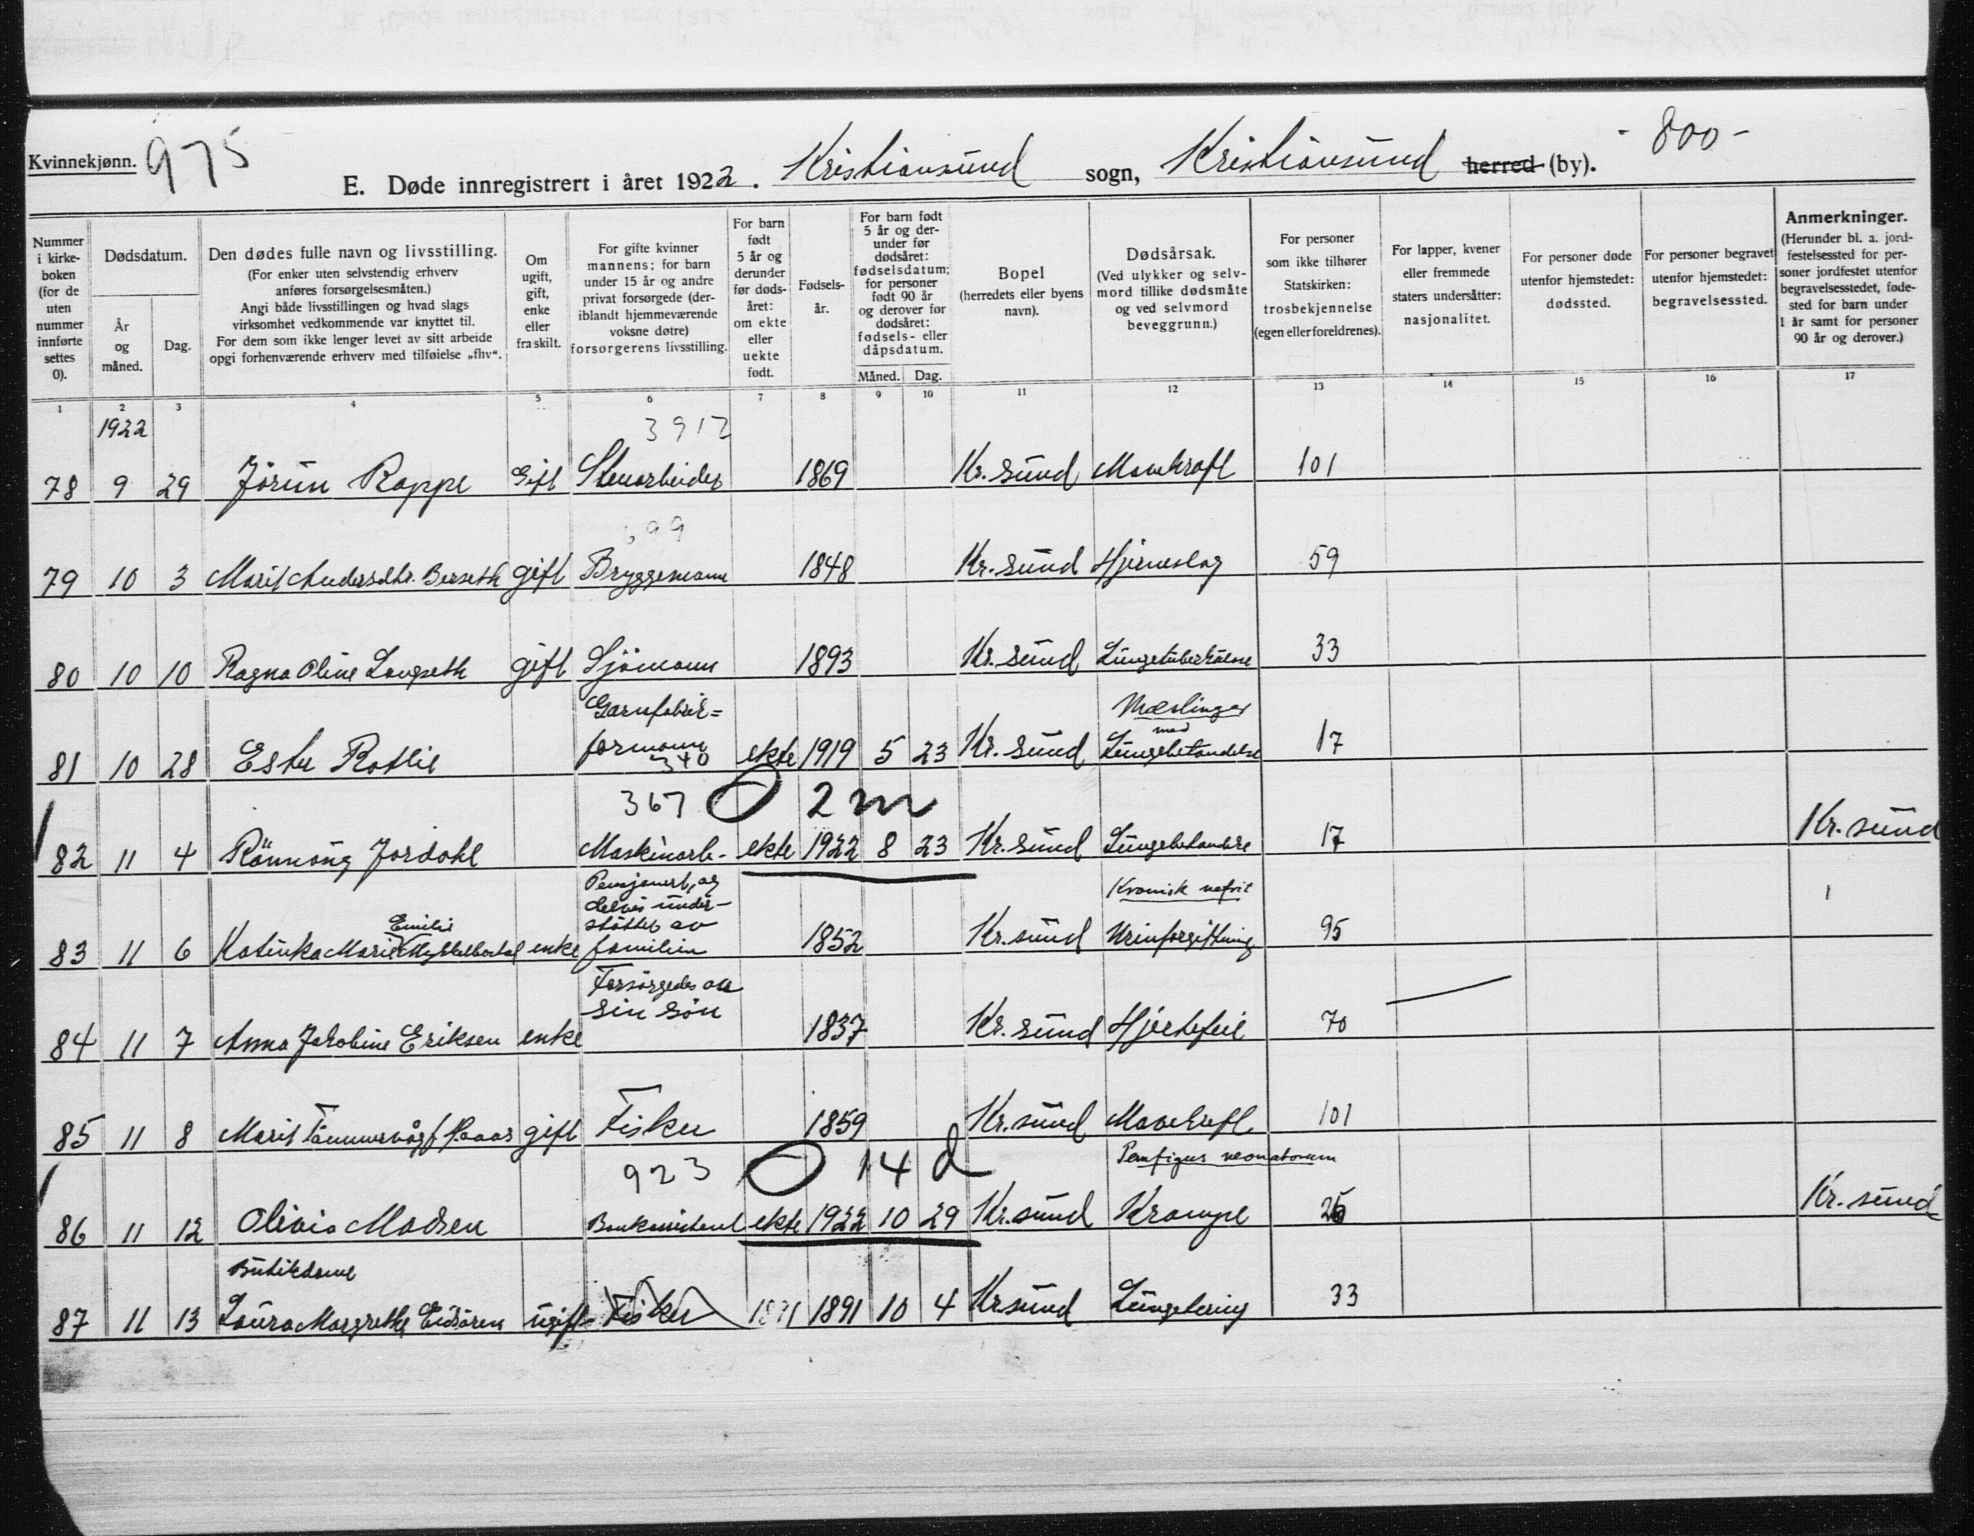 Kvinnekjønn. 975
E. Døde innregistrert i året 1922. Kristiansund sogn, Kristiansund herred (by). - 800 -
Nummer i kirkeboken (for de uten nummer innførte settes 0).
Dødsdatum.
År og måned.
Dag.
Den dødes fulle navn og livsstilling.
(For enker uten selvstendig erhverv anføres forsørgelsesmåten.)
Angi både livsstillingen og hvad slags virksomhet vedkommende var knyttet til.
For dem som ikke lenger levet av sitt arbeide opgi forhenværende erhverv med tilføielse „fhv“.
Om ugift, gift, enke eller fraskilt.
For gifte kvinner mannens; for barn under 15 år og andre privat forsørgede (deriblandt hjemmeværende voksne døtre) forsørgerens livsstilling.
For barn født 5 år og derunder før dødsåret: om ekte eller uekte født.
Fødselsår.
For barn født 5 år og derunder før dødsåret: fødselsdatum; for personer født 90 år og derover før dødsåret: fødsels- eller dåpsdatum.
Måned. Dag.
Bopel
(herredets eller byens navn).
Dødsårsak.
(Ved ulykker og selvmord tillike dødsmåte og ved selvmord beveggrunn.)
For personer som ikke tilhører Statskirken: trosbekjennelse (egen eller foreldrenes).
For lapper, kvener eller fremmede staters undersåtter: nasjonalitet.
For personer døde utenfor hjemstedet: dødssted.
For personer begravet utenfor hjemstedet: begravelsessted.
Anmerkninger.
(Herunder bl. a. jordfestelsessted for personer jordfestet utenfor begravelsesstedet, fødested for barn under 1 år samt for personer 90 år og derover.)
1 2 3 4 5 6 7 8 9 10 11 12 13 14 15 16 17
1922 3912
78 9 29 Jørun Roppe Gift Stenarbeider 1869 Kr.sund Mavekræft 101
99
79 10 3 Marit Andersdtr. Berseth gift Bryggemann 1848 Kr.sund Hjerneslag 59
80 10 10 Ragna Oline Langseth gift Sjömann 1893 Kr.sund Lungetuberkulose 33
Garnfabrik= Mæslinger
med
81 10 28 Ester Rotlie formann ekte 1919 5 23 Kr.sund Lungebetændelse 17
340
367 O 2 m
82 11 4 Rønnaug Jordahl Maskinarb- ekte 1922 8 23 Kr.sund Lungebetændelse 17 Kr.sund
Pensjonert, og Kronisk nefrit
delvis under-
støttes av
Emilie
83 11 6 Katinka Marie Myklebostad enke familien 1852 Kr.sund Urinforgiftning 95
Forsørgedes av
sin søn
84 11 7 Anna Jakobine Eriksen enke 1837 Kr.sund Hjertefeil 70
85 11 8 Marit Tømmervåg f. gift Fisker 1859 Kr.sund Mavekreft 101
923 O 14 d Pemfigus neonatorum
86 11 12 Olivia Madsen ekte 1922 10 29 Kr.sund Krampe Kr.sund
Butikdame
87 11 13 Laura Margrethe Eidsøren ugift Fisker 1891 1891 10 4 Kr.sund Lungetæring 33